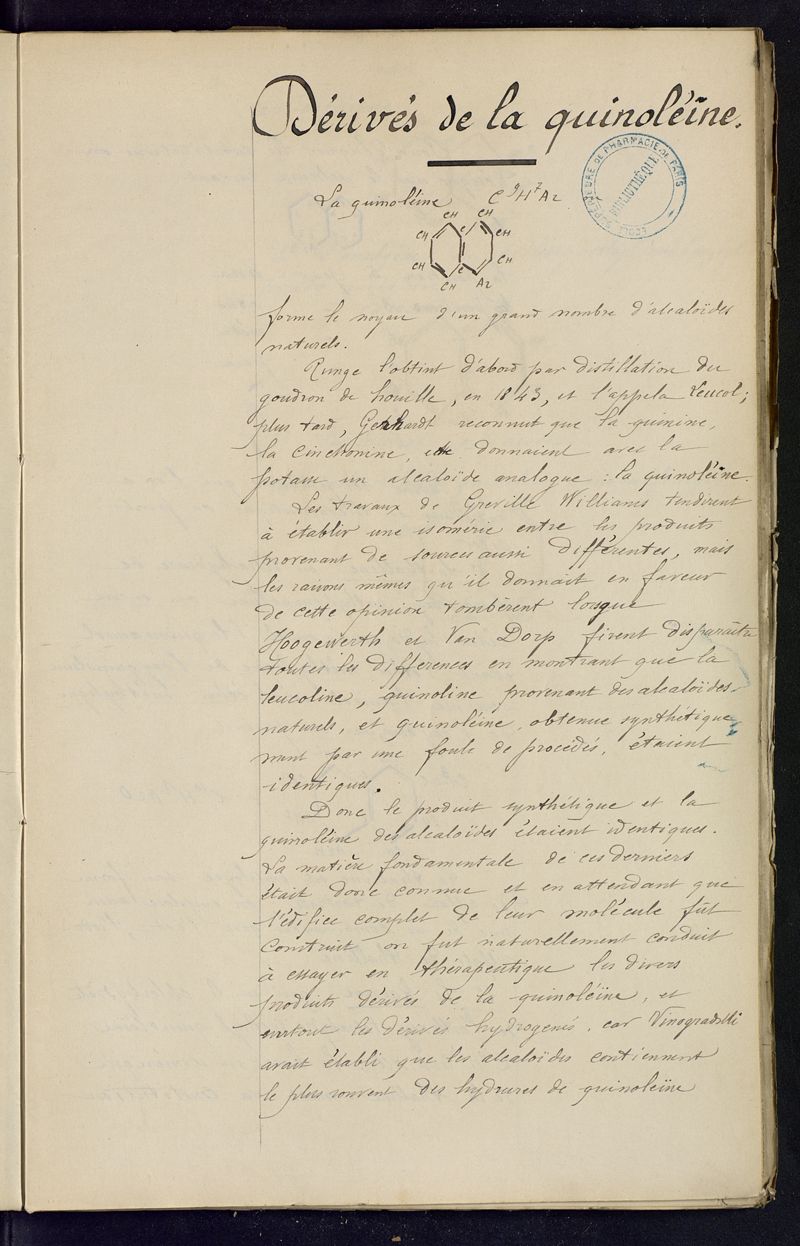 Dérivés de la quinoléïne.
ÉCOLE SUPÉRIEURE DE PHARMACIE DE PARIS
BIBLIOTHÈQUE
La quinoléïne C⁹H⁷Az
CH CH
CH C CH
CH C CH
CH Az
forme le noyau d'un grand nombre d'alcaloïdes
naturels.
Runge l'obtint d'abord par distillation du
goudron de houille, en 1843, et l'appela Leucol;
plus tard, Gerhardt reconnut que la quinine,
la cinchonine, etc donnaient avec la
potasse un alcaloïde analogue : la quinoléïne.
Les travaux de Greville Williams tendirent
à établir une isomérie entre les produits
provenant de sources aussi différentes, mais
les raisons mêmes qu'il donnait en faveur
de cette opinion tombèrent lorsque
Hoogewerth et Van Dorp firent disparaître
toutes les différences en montrant que la
leucoline, quinoline provenant des alcaloïdes
naturels, et quinoléïne, obtenue synthétique
ment par une foule de procédés, étaient
identiques.
Donc le produit synthétique et la
quinoléïne des alcaloïdes étaient identiques.
La matière fondamentale de ces derniers
était donc connue et en attendant que
l'édifice complet de leur molécule fût
construit on fut naturellement conduit
à essayer en thérapeutique les divers
produits dérivés de la quinoléïne, et
surtout les dérivés hydrogénés, car Vinogradski
avait établi que les alcaloïdes contiennent
le plus souvent des hydrures de quinoléïne